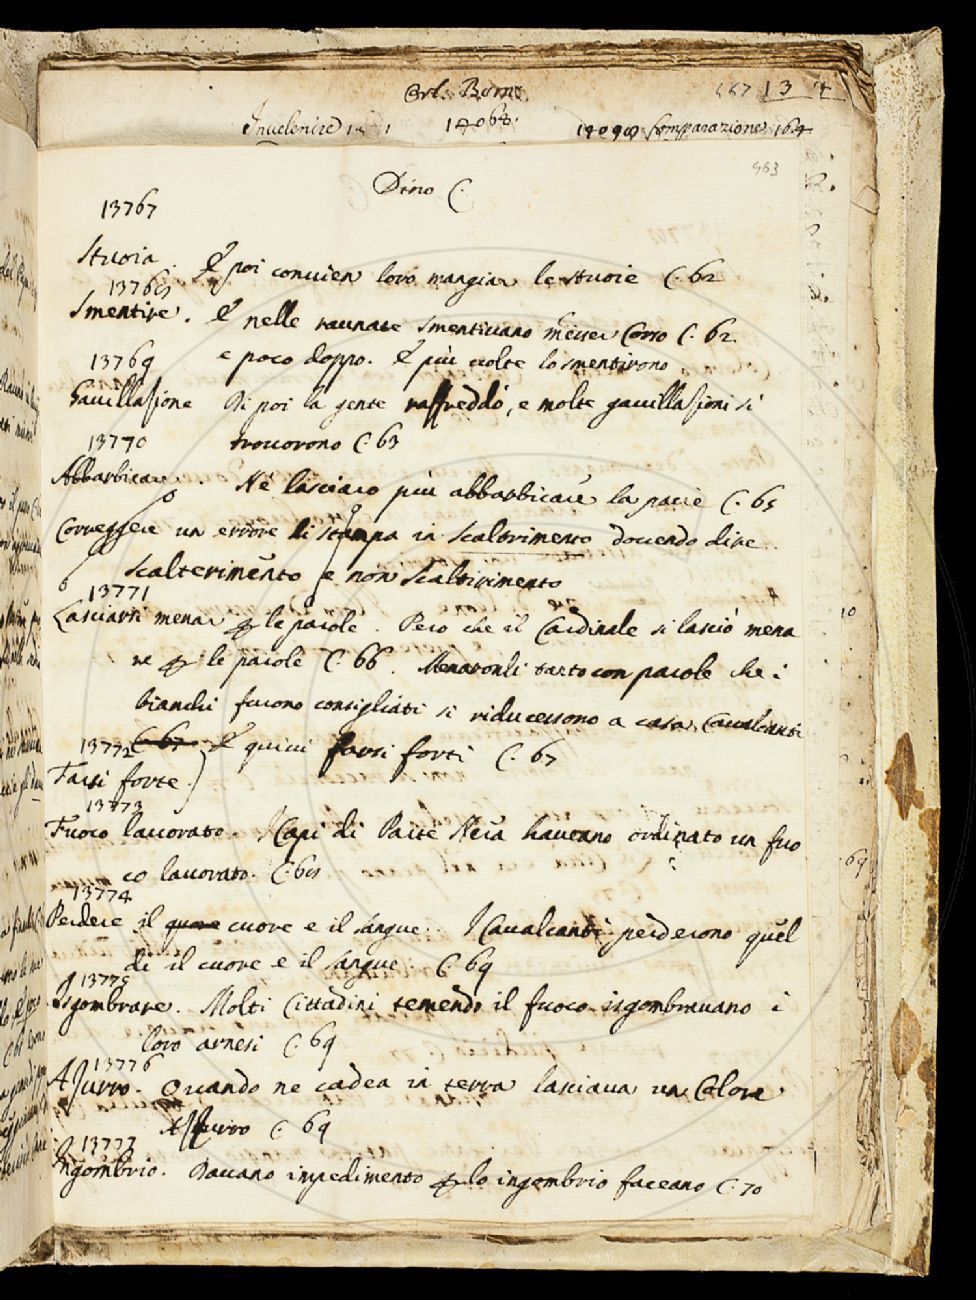 Orl.
567 13
Invelenire 14068. 14098 Comparazione 164
463
Dino C.
13767
Stuoia. E poi convien loro mangiar le stuoie C. 62
13768
Smentire. E nelle raunate smentivano messer Corso C. 62.
e poco doppo. E più volte lo smentirono
13769
Gavillasione Di poi la gente raffreddò, e molte gavillasioni si
trovorono C. 63
13770
Abbarbicare. Nè lasciaro più abbarbicare la pacie C. 65
Correggere un errore di stampa in scaltrimento dovendo dire
scalterimento e non scaltrimento
13771
Lasciarsi menar per le parole. Però che il Cardinale si lasciò mena
re per le parole C. 66. Menaronli tanto con parole che i
bianchi furono consigliati si riducessono a casa Cavalcanti
13772 C. 67 E quivi farsi forti C. 67
Farsi forte.
13773
Fuoco lavorato. I Capi di Parte Nera haveano ordinato un fuo
co lavorato. C. 68
13774
Perdere il quore cuore e il sangue. I Cavalcanti perderono quel
dì il cuore e il sangue C. 69
13775
Isgombrare. Molti Cittadini temendo il fuoco isgombravano i
loro arnesi C. 69
13776
Assurro. Quando ne cadea in terra lasciava un Colore
Assurro C. 69
13777
Ingombrio. Davano impedimento per lo ingombrio faceano C. 70